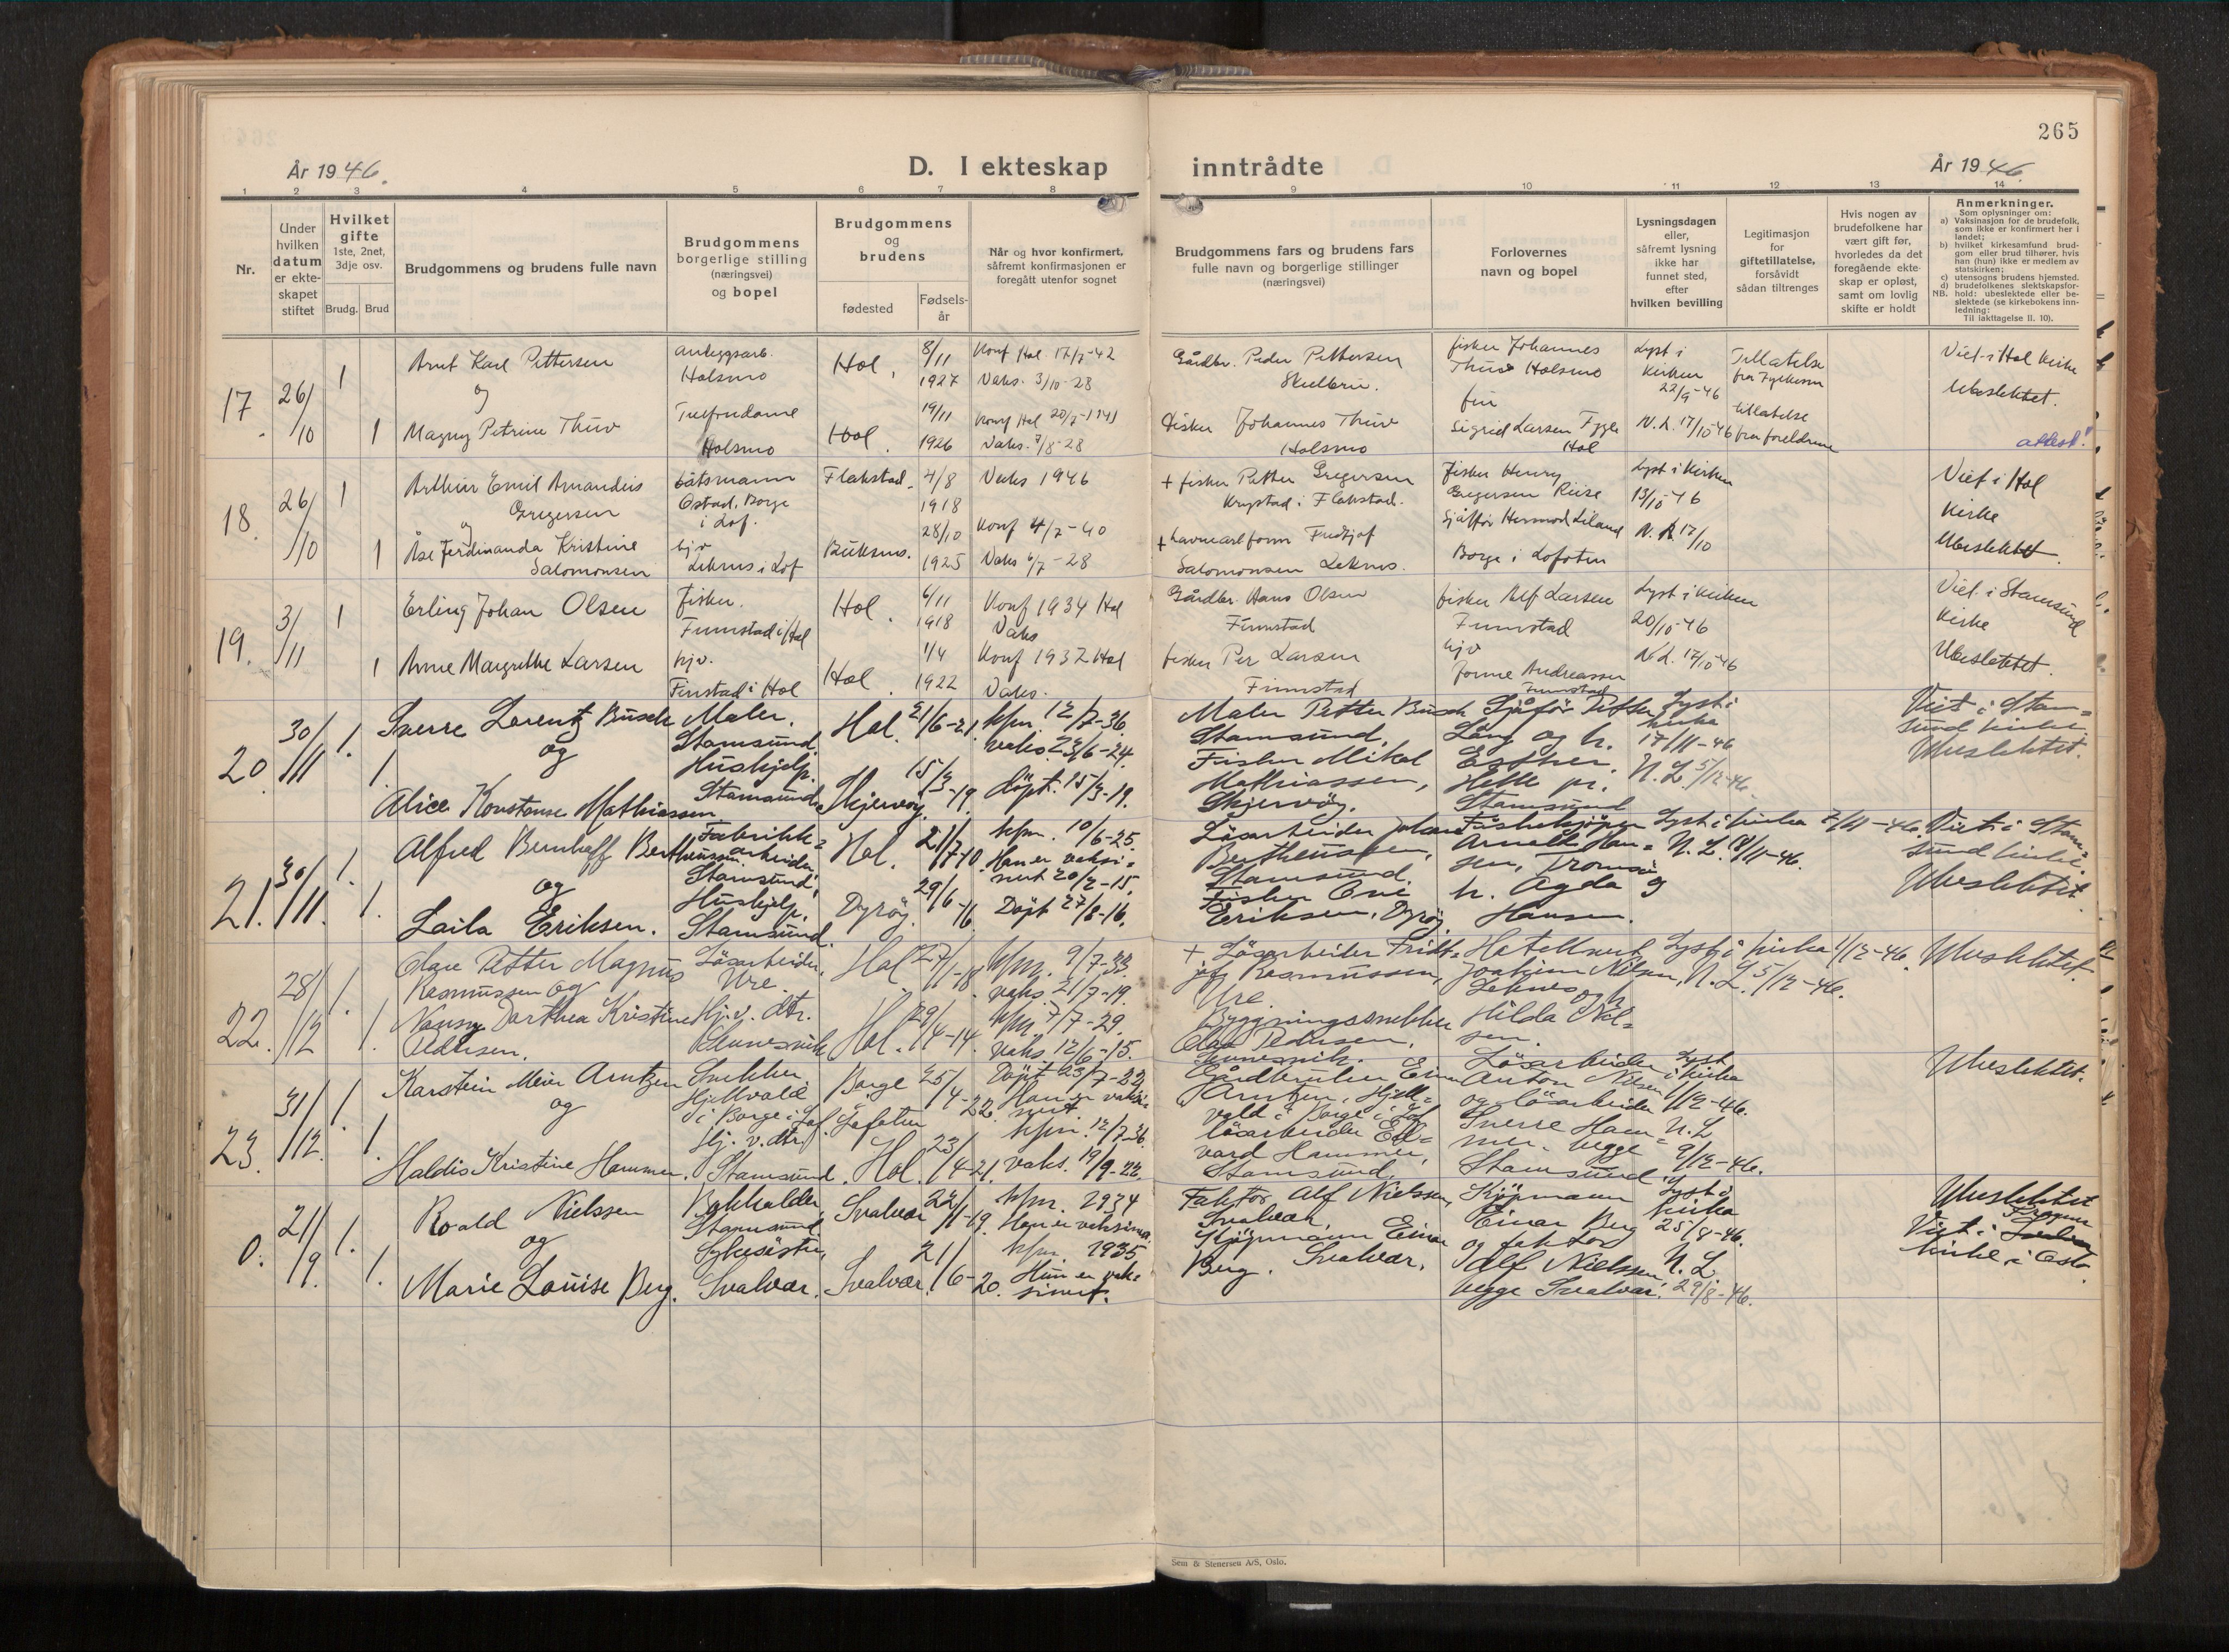 265
År 1946.
D. I ekteskap inntrådte
År 1946.
1 2 3 4 5 6 7 8 9 10 11 12 13 14
Nr.
Under
hvilken
datum
er ekte-
skapet
stiftet
Hvilket
gifte
1ste, 2net,
3dje osv.
Brudg. Brud
Brudgommens og brudens fulle navn
Brudgommens
borgerlige stilling
(næringsvei)
og bopel
Brudgommens
og
brudens
fødested
Fødsels-
år
Når og hvor konfirmert,
såfremt konfirmasjonen er
foregått utenfor sognet
Brudgommens fars og brudens fars
fulle navn og borgerlige stillinger
(næringsvei)
Forlovernes
navn og bopel
Lysningsdagen
eller,
såfremt lysning
ikke har
funnet sted,
efter
hvilken bevilling
Legitimasjon
for
giftetillatelse,
forsåvidt
sådan tiltrenges
Hvis nogen av
brudefolkene har
vært gift før,
hvorledes da det
foregående ekte-
skap er opløst,
samt om lovlig
skifte er holdt
Anmerkninger.
Som oplysninger om:
a) Vaksinasjon for de brudefolk,
som ikke er konfirmert her i
landet;
b) hvilket kirkesamfund brud-
gom eller brud tilhører, hvis
han (hun) ikke er medlem av
statskirken;
c) utensogns brudens hjemsted.
d) brudefolkenes slektskapsfor-
NB. hold: ubeslektede eller be-
slektede (se kirkebokens inn-
ledning:
Til iakttagelse II. 10).
17.
26/10
1
Arnt Karl Pettersen
og
1
Magny Petrine Thuv
Anleggsarb.
Holsmo
Holsmo
Hol.
8/11
1927
Hol.
19/11
1926
Konf Hol 17/7-42
Vaks. 3/10-28
Konf Hol 20/7-1941
Vaks. 7/8-28
Gårdbr. Peder Pettersen
Fisker Johannes Thuv
Holsmo
fisker Johannes
Thuv Holsmo
Sigrid Larsen Fygle
Hol
Lyst i
kirken
22/9-46
N.L. 17/10-46
Tillatelse
tillatelse
fra foreldrene
Viet i Hol kirke
Ubeslektet.
attest!
18.
26/10
1
Arthur Emil Amandus
Gregersen
og
1
Åse Ferdinanda Kristine
Salomonsen
båtsmann
Ostad, Borge
i Lof.
hjv
Leknes i Lof
Flakstad.
4/8
1918
Buksnes.
28/10
1925
Vaks 1946
Konf 4/7-40
Vaks 6/7-28
+ fisker Petter Gregersen
Krystad i Flakstad.
+ havnearb form Fridtjof
Salomonsen Leknes.
Fisker Henry
Gregersen Riise
Sjåfør Hermod Liland
Borge i Lofoten
Lyst i kirken
13/10-46
N.L. 17/10
Viet i Hol
kirke
Ubeslektet.
19.
3/11
1
Erling Johan Olsen
1
Anne Margrethe Larsen
Fisker.
Finnstad i Hol
hjv.
Finstad i Hol
Hol.
6/11
1918
Hol.
1/4
1922
Konf 1934 Hol
Vaks
Konf 1937 Hol
Vaks.
Gårdbr. Hans Olsen
Finnstad
fisker Per Larsen
Finnstad
fisker Alf Larsen
Finnstad
hjv
Andreassen
Finnstad
Lyst i kirken
20/10-46
N.L. 17/10-46
Viet i Stamsund
kirke
Ubeslektet.
20.
30/11
1.
1.
Sverre Lorentz Busch
og
Alice Konstanse Mathiassen
Maler.
Stamsund.
Hushjelp.
Stamsund.
Hol.
21/6-21.
Skjervøy.
15/3-19.
kfm. 12/7-36.
vaks. 23/6-24.
döpt. 15/3-19.
Maler Petter Busch
Stamsund.
Fisker Mikal
Mathiassen,
Skjervöy.
Sjåför Petter
Lång og h.
Esther.
Stamsund
Lyst i
kirka
17/11-46
N.L 5/12-46.
Viet i Stam=
sund kirke.
Ubeslektet.
21.
30/11.
1.
1.
Alfred Bernhoff Bertheussen.
og
Laila Eriksen.
Fabrikk=
arbeider
Stamsund.
Hushjelp.
Stamsund.
Hol.
21/7-10.
Dyröy.
29/6-16.
kfm. 10/6-25.
Han er vaksi=
nert 20/2-15.
Döpt 27/8-16.
Lösarbeider Johan
Bertheussen,
Stamsund.
Fisker Oni
Eriksen, Dyröy.
Fiskekjöper
Arnold Han=
sen, Tromsö og
h. Agda
Hansen.
Lyst i kirka 2/11-46.
N.L. 18/11-46.
Viet i Stam=
sund kirke.
Ubeslektet.
22.
28/12
1.
1.
Olav Petter Magnus
Rasmussen og
Nanny Dorthea Kristine
Pedersen.
Lösarbeider,
Ure.
Hj.v. dtr.
Sennesvik
Hol.
27/1-18.
Hol.
29/4-14.
kfm. 9/7-33.
vaks. 21/7-19.
kfm. 7/7-29.
vaks. 12/6-15.
+ Lösarbeider Fridt=
jof Rasmussen,
Ure.
Byggningssnekker
Olav Pedersen,
Sennesvik.
Hotellvert
Joakim Nilsen,
Leknes og h
Hilda Nil=
sen.
Lyst i kirka 1/12-46.
N.L. 5/12-46.
Ubeslektet.
23.
31/12.
1.
1.
Karstein Meier Arntzen
og
Haldis Kristine Hammer.
Snekker
Hjellvold
i Borge i Lof.
Hj. v. dtr.
Stamsund.
Borge
Lofoten
25/4-22.
Hol.
23/4-21.
Döpt 23/7-22
Han er vaksi=
nert.
kfm. 12/7-36.
vaks. 19/9-22.
Gårdbruker Einar
Arntzen, Hjell=
vold i Borge i Lof
lösarbeider Ed=
vard Hammer,
Stamsund.
Lösarbeider
Anton Nilsen
og lösarbeider
Sverre Ham=
mer. begge
Stamsund
Lyst
i kirka
1/12-46.
N.L
9/12-46.
Ubeslektet.
0.
21/9.
1.
1.
Roald Nielssen
og
Marie Louise Berg.
Bokholder,
Stamsund
Sykesöster,
Svolvær.
Svolvær
22/11-19.
Svolvær.
21/6-20.
kfm. 1934
Han er vaksinert.
kfm. 1935
Hun er vak=
sinert.
Faktor Alf Nielssen,
Svolvær.
Kjöpmann Einar
Berg. Svolvær.
Kjöpmann
Einar Berg
og faktor
Alf Nielssen,
begge Svolvær.
Lyst i
kirka
25/8-46.
N.L
29/8-46.
Ubeslektet
Viet i
kirke i Oslo.
Sem & Stenersen A/S, Oslo.